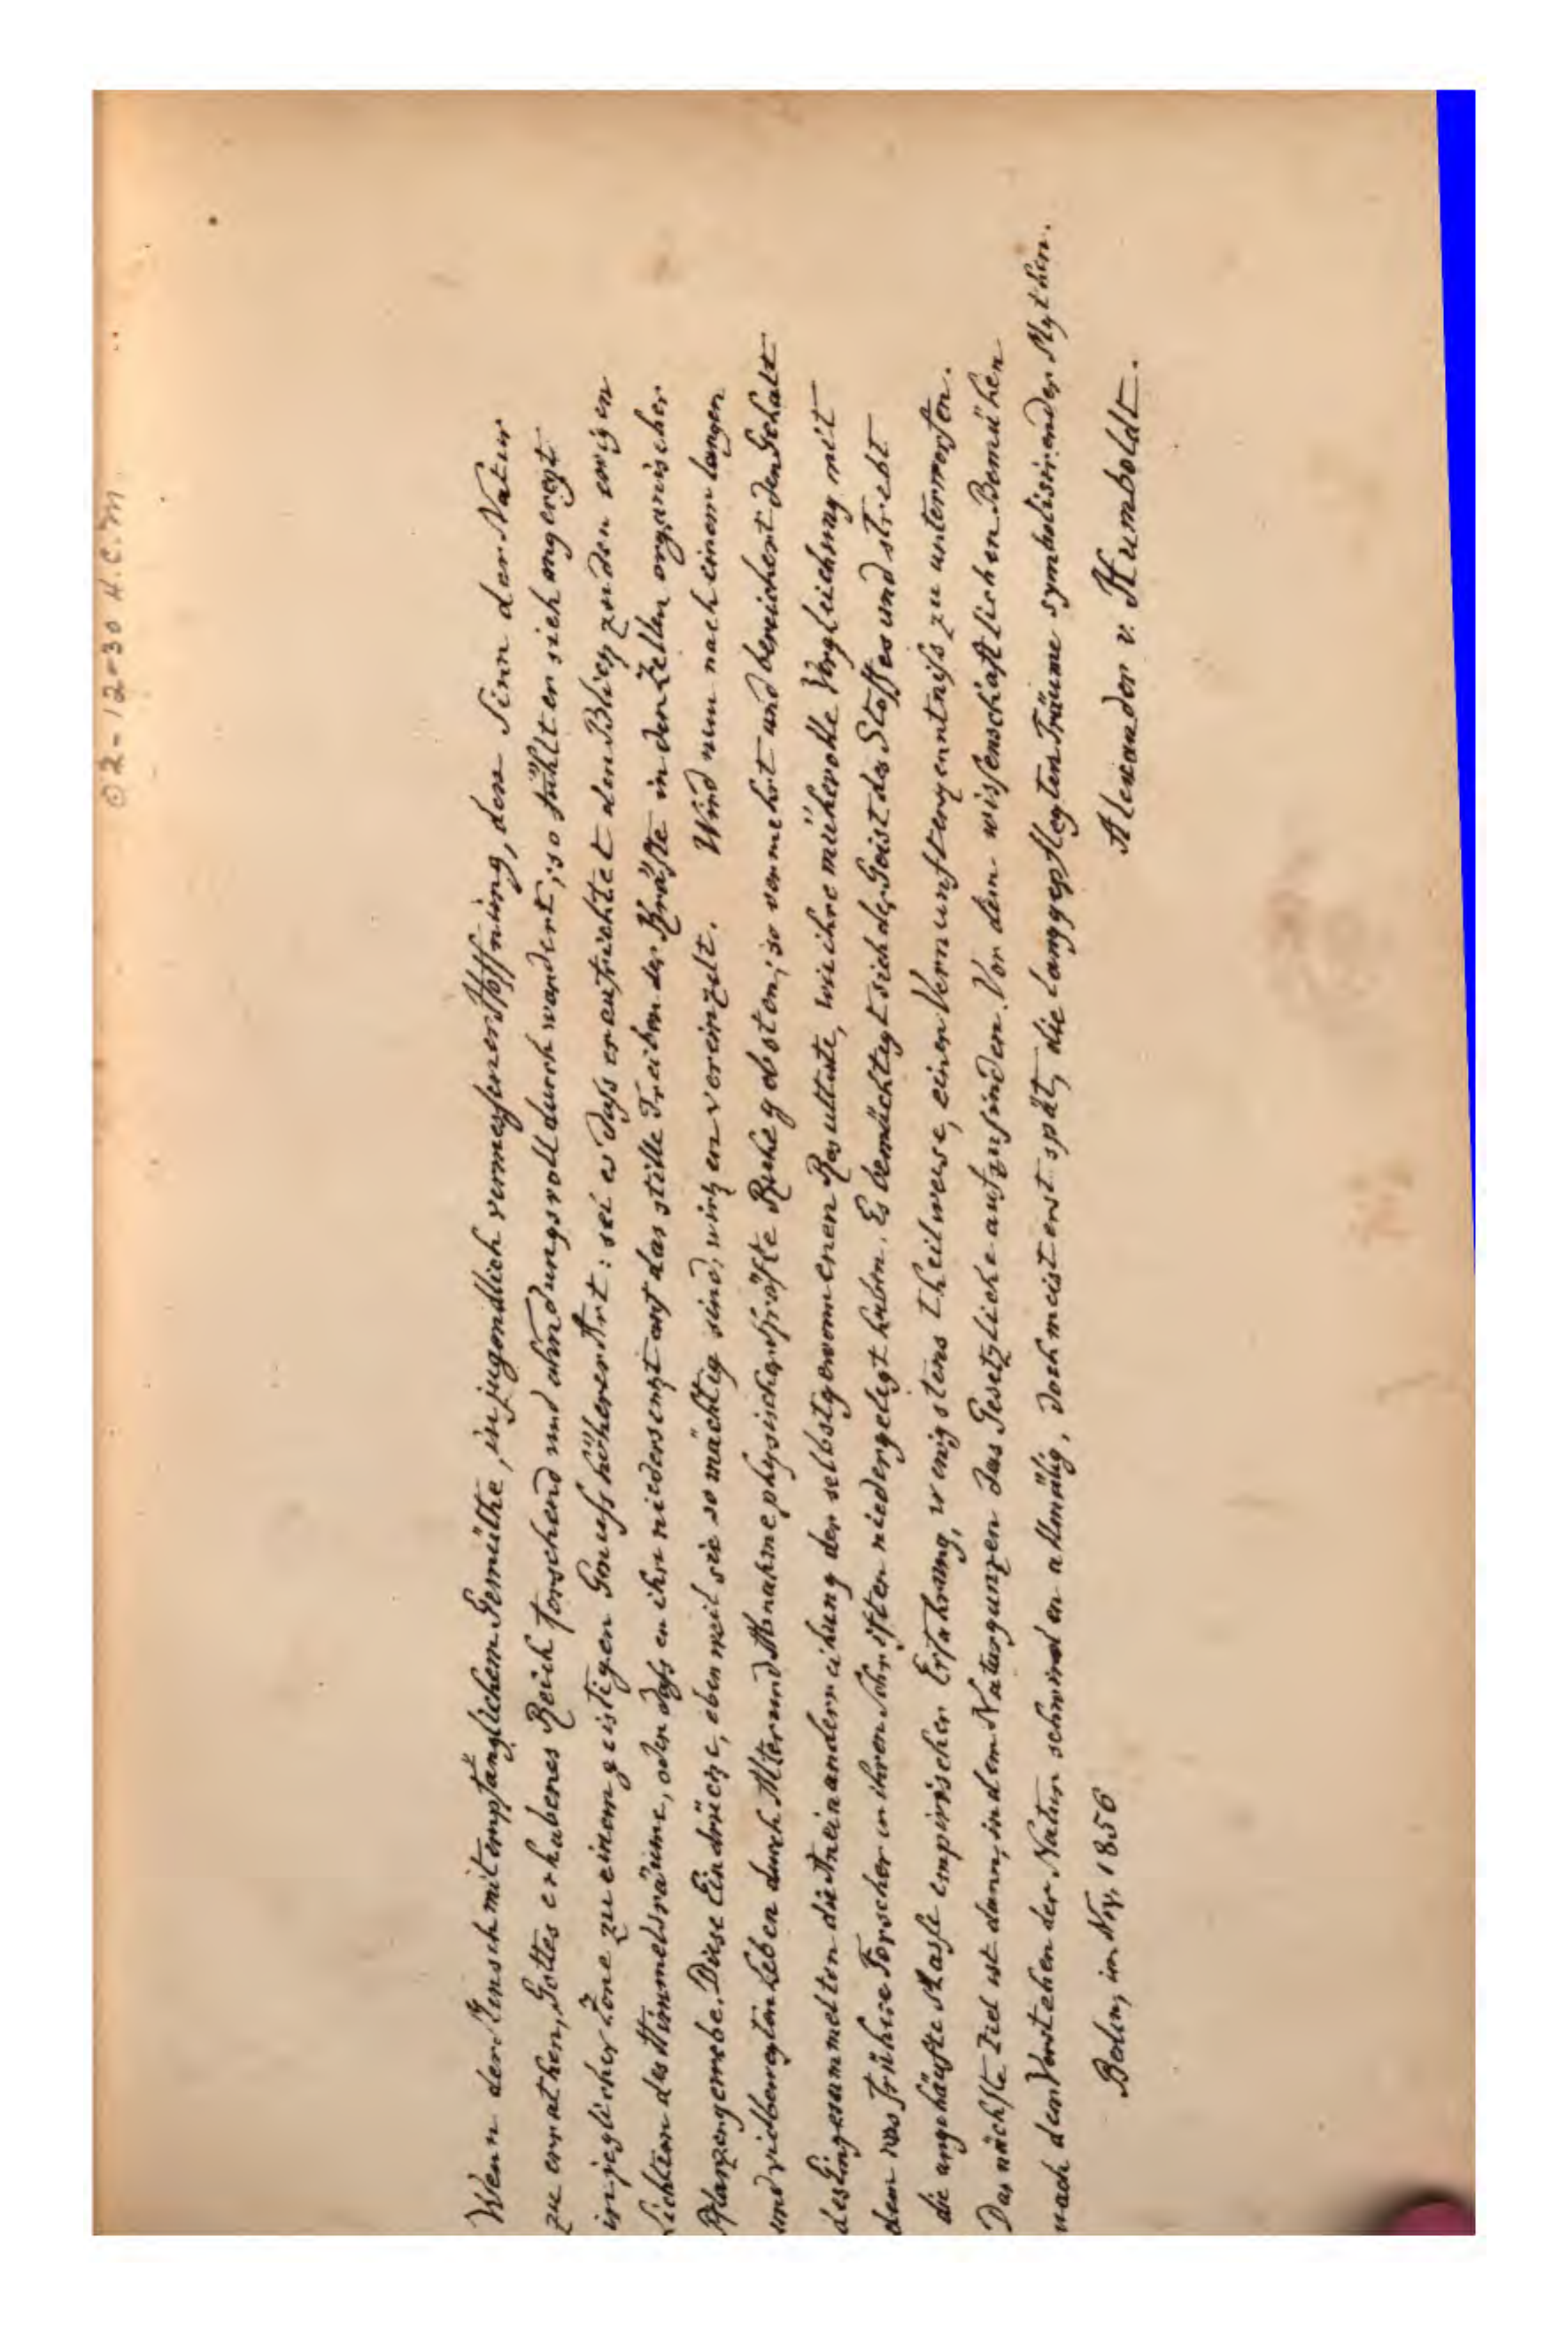 02-12-30 H.C.M.
Wenn der Mensch mit empfänglichem Gemüthe, in jugendlich vermessener Hoffnung, den Sinn der Natur
zu errathen, Gottes erhabenes Reich forschend und ahndungsvoll durchwandert; so fühlt er sich angeregt
in jeglicher Zone zu einem geistigen Genuss höherer Art: sei es dass er aufrichtet den Blick zu den ewigen
Lichtern der Himmelsräume, oder dass er ihn niedersenkt auf das stille Treiben der Kräfte in den Zellen organischer
Pflanzengewebe. Diese Eindrücke, eben weil sie so mächtig sind, wirken vereinzelt. Wird nun nach einem langen
und vielbewegten Leben durch Alter und Abnahme physischer Kräfte Ruhe geboten; so vermehrt und bereichert den Gehalt
des Eingesammelten die Aneinanderreihung der selbstgewonnenen Resultate, wie ihre mühevolle Vergleichung mit
dem was frühere Forscher in ihren Schriften niedergelegt haben. Es bemächtigt sich der Geist des Stoffes und strebt
die angehäufte Masse empirischer Erfahrung, wenigstens theilweise, einer Vernunfterkenntniss zu unterwerfen.
Das nächste Ziel ist dann, in dem Naturganzen das Gesetzliche aufzufinden. Vor dem wissenschaftlichen Bemühen
nach dem Verstehen der Natur schwinden allmälig, doch meist erst spät, die langgepflegten Träume symbolisirender Mythen.
Berlin, im Nov. 1856
Alexander v. Humboldt.